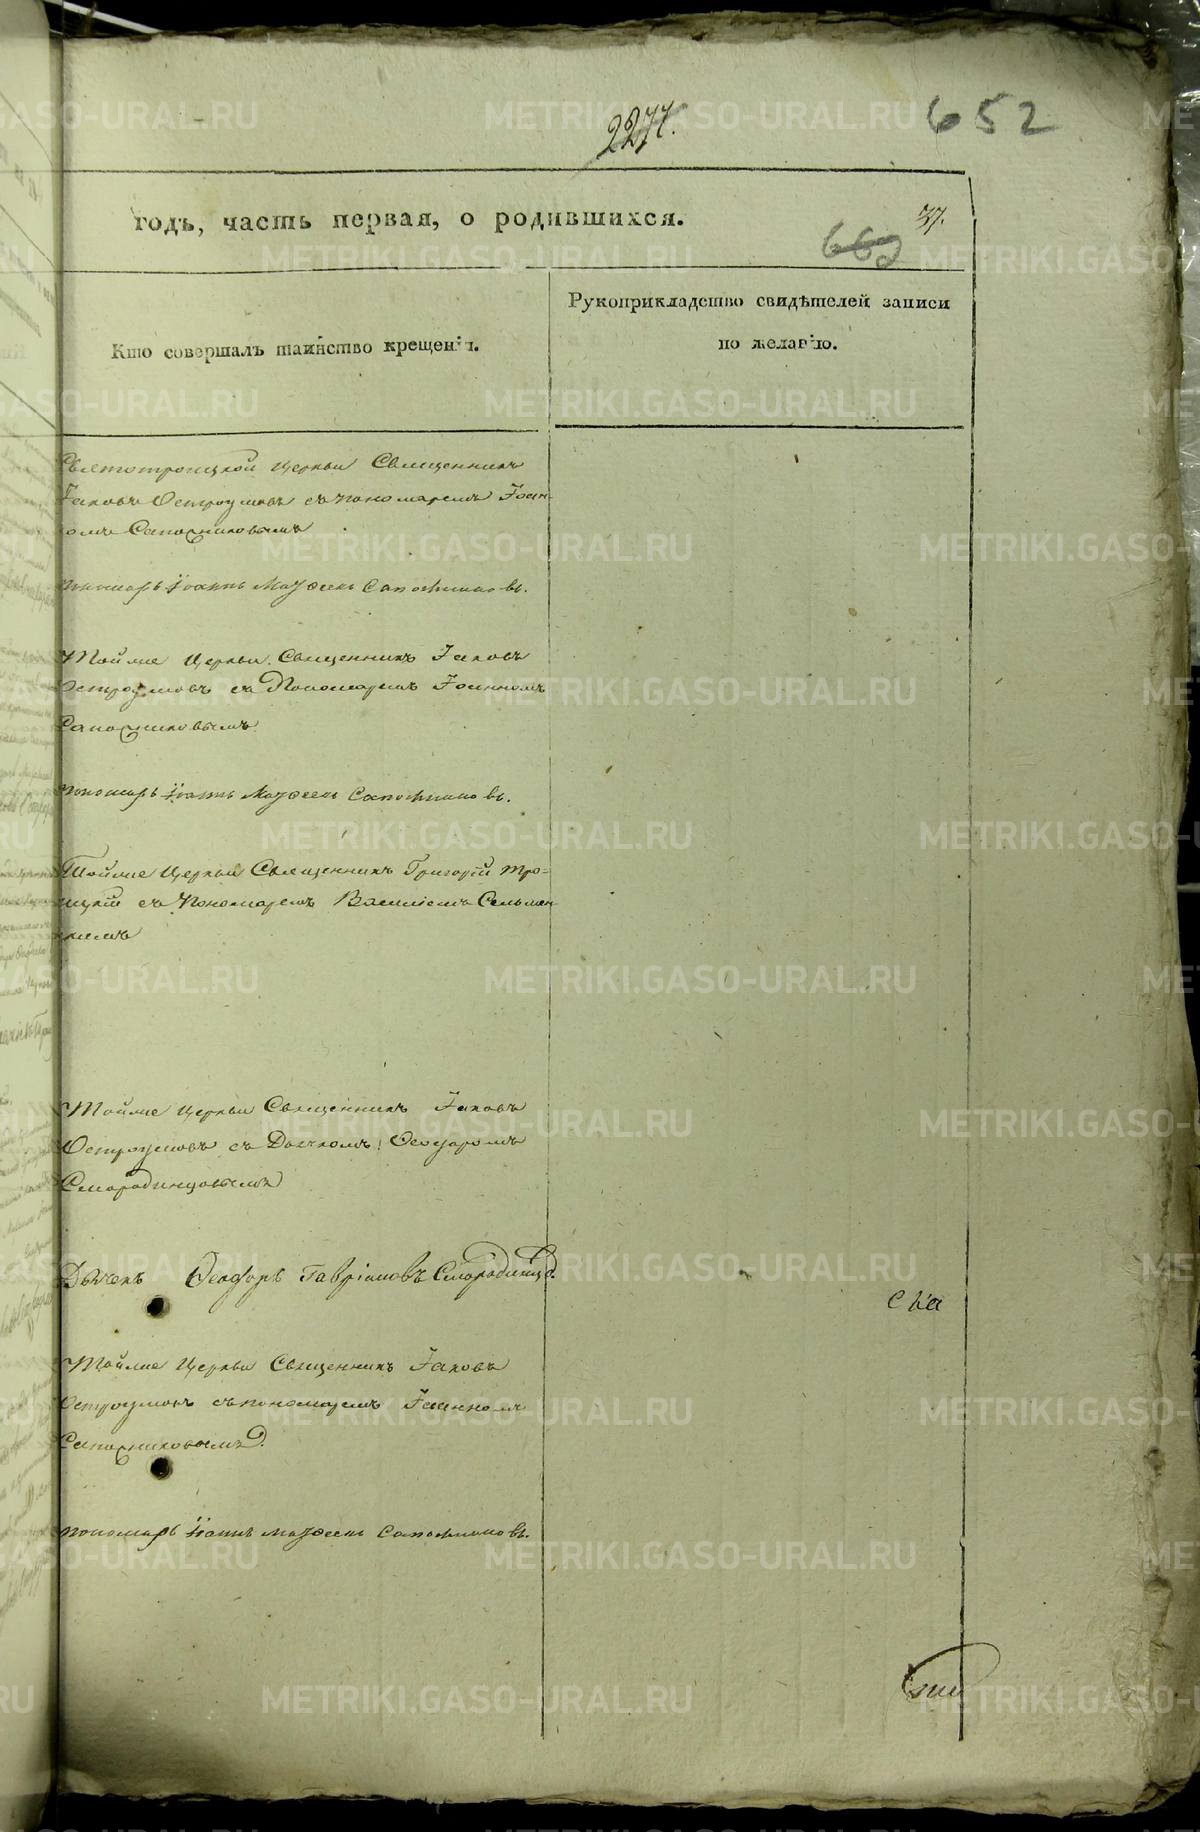 652
годъ, часть первая, о родившихся.
37.
Кто совершалъ таинство крещенія.
Рукоприкладство свидѣтелей записи
по желанію.
Святотроицкой Церкви Священникъ
Іаковъ Остроумовъ съ пономаремъ Іоан-
номъ Сапожниковымъ
пономарь Іоаннъ Матѳеевъ Сапожниковъ.
Тойже Церкви Священникъ Іаковъ
Остроумовъ съ Пономаремъ Іоанномъ
Сапожниковымъ
пономарь Іоаннъ Матѳеевъ Сапожниковъ.
Тойже Церкви Священникъ Григорій Тро-
ицкій съ Пономаремъ Василіемъ
Тойже Церкви Священникъ Іаковъ
Остроумовъ съ Дьячкомъ Ѳеодоромъ
Смородинцовымъ
Дьячекъ Ѳеодоръ Гавріиловъ Смородинцо.
Тойже Церкви Священникъ Іаковъ
Остроумовъ съ пономаремъ Іоанномъ
Сапожниковымъ.
пономарь Іоаннъ Матѳеевъ Сапожниковъ.
METRIKI.GASO-URAL.RU